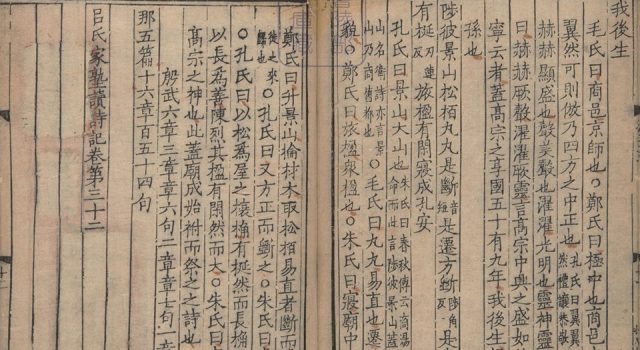 我後生
毛氏曰商邑京師也○鄭氏曰極中也商邑
翼然可則傚乃四方之中正也孔氏曰翼翼然禮讓恭敬
赫赫顯盛也聲美聲也濯濯光明也靈神靈
曰赫赫厥聲濯濯厥靈言高宗中興之盛如
寧云者蓋高宗之享國五十有九年我後生
孫也
陟彼景山松栢丸丸是斷是遷方斲陟角反是
有梴丑連反旅楹有閑寢成孔安
孔氏曰景山大山也朱氏曰春秋傳云商湯命而此言陟彼景山蓋
山名衛詩亦言景山乃商舊都也○毛氏曰丸丸易直也遷
貌○鄭氏曰旅楹衆楹也○朱氏曰寢廟中
鄭氏曰升景山掄材木取松栢易直者斷而
徙之來歸也○孔氏曰又方正而斲之○朱氏曰
○孔氏曰以松爲屋之榱桷有梴然而長桷
以長爲善陳列其楹有閑然而大○朱氏曰
高宗之神也此蓋廟成始祔而祭之之詩也
殷武六章三章章六句二章章七句一章
那五篇十六章百五十四句
吕氏家塾讀詩記卷第三十二